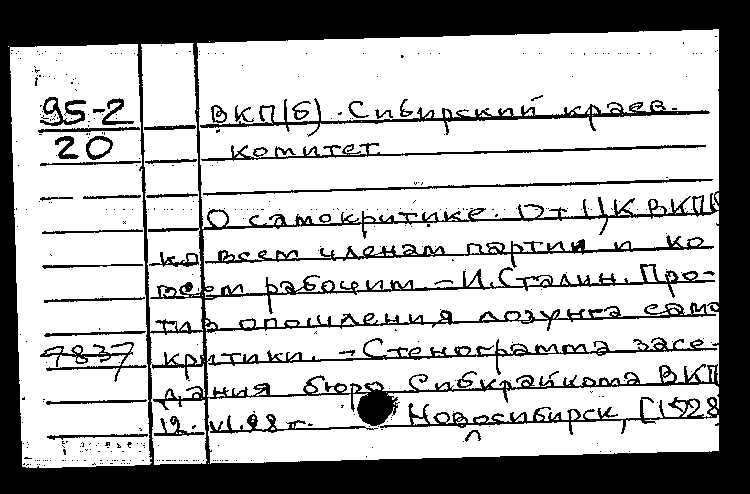 95-2
20
ВКП(б). Сибирский краев.
комитет
О самокритике. От ЦК ВКП(б
ко всем членам партии и ко
всем рабочим. - И. Сталин. Про-
тив опошления лозунга само
критики. - Стенограмма засе-
7837
дания бюро Сибкрайкома ВКП
12. VI. 28 г. Новосибирск, [1928